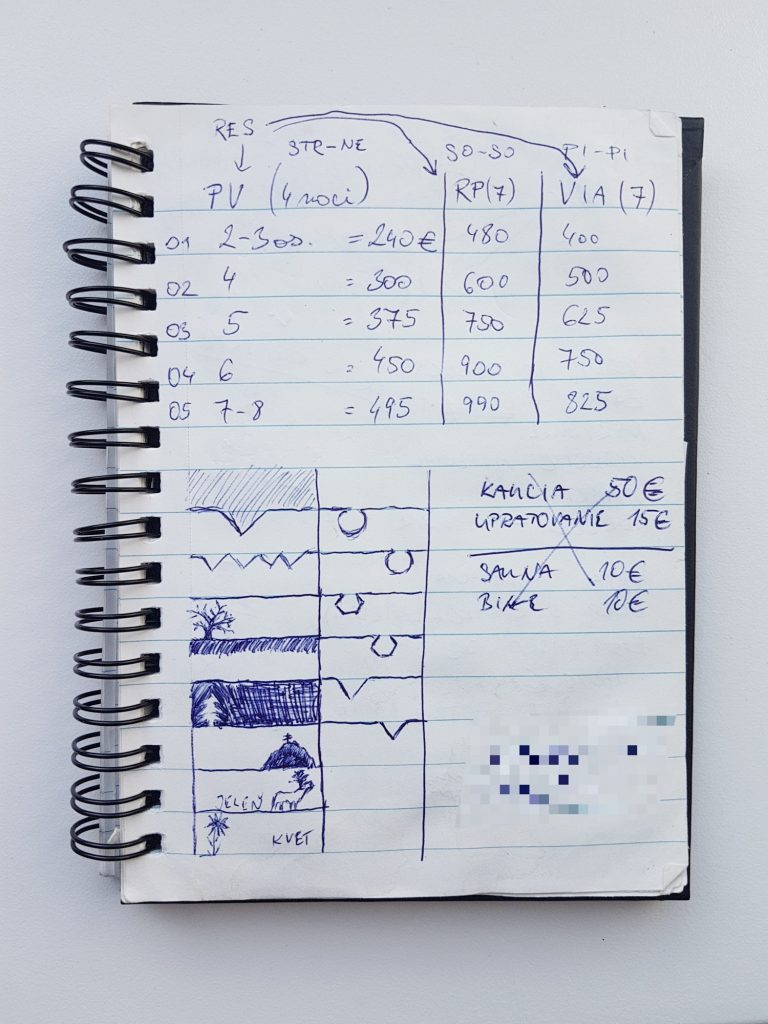 RES
STR-NE SO-SO PI-PI
PV (4 noci) RP(7) VIA (7)
01 2-3 os. = 240€ 480 400
02 4 = 300 600 500
03 5 = 375 750 625
04 6 = 450 900 750
05 7-8 = 495 990 825
KAUCIA 50€
UPRATOVANIE 15€
SAUNA 10€
BIKE 10€
JELEŇ
KVET